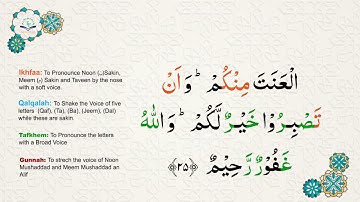 Ikhfaa: To Pronounce Noon (ن)Sakin,
Meem (م) Sakin and Taveen by the nose
with a soft voice.
Qalqalah: To Shake the Voice of five
letters (Qaf), (Ta), (Ba), (Jeem), (Dal)
while these are sakin.
Tafkhem: To Pronounce the letters
with a Broad Voice
Gunnah: To strech the voice of Noon
Mushaddad and Meem Mushaddad an
Alif
الْعَنَتَ مِنْكُمْ ؕ وَاَنْ
تَصْبِرُوْا خَيْرٌ لَّكُمْ ؕ وَاللّٰهُ
غَفُوْرٌ رَّحِيْمٌ ﴿۲۵﴾